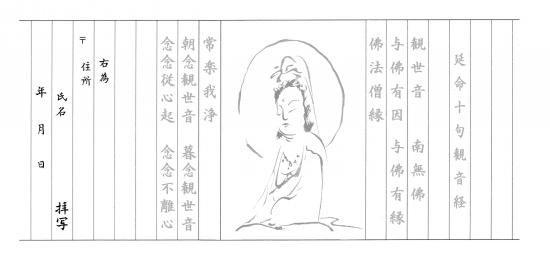 延命十句観音経
観世音　南無佛
与佛有因　与佛有縁
佛法僧縁
常楽我浄
朝念観世音　暮念観世音
念念従心起　念念不離心
右為
〒住所
氏名　拝写
年　月　日